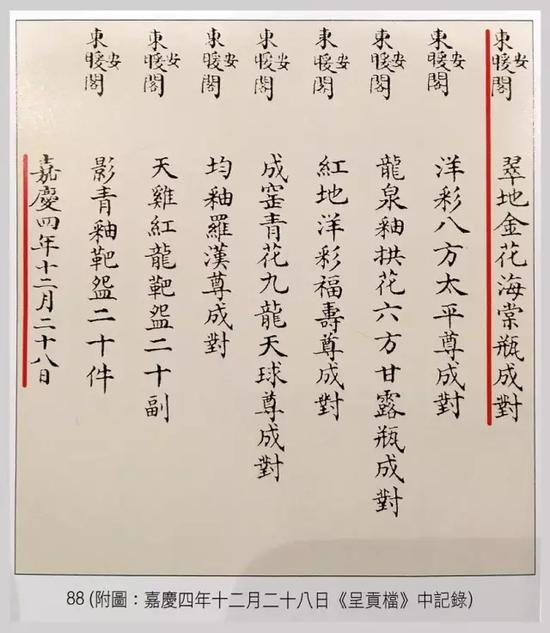 東暖閣安 翠地金花海棠瓶成對
東暖閣安 洋彩八方太平尊成對
東暖閣安 龍泉釉拱花六方甘露瓶成對
東暖閣安 紅地洋彩福壽尊成對
東暖閣安 成窰青花九龍天球尊成對
東暖閣安 均釉羅漢尊成對
東暖閣安 天雞紅龍靶盌二十副
東暖閣安 影青釉靶盌二十件
嘉慶四年十二月二十八日
88 (附圖：嘉慶四年十二月二十八日《呈貢檔》中記錄)